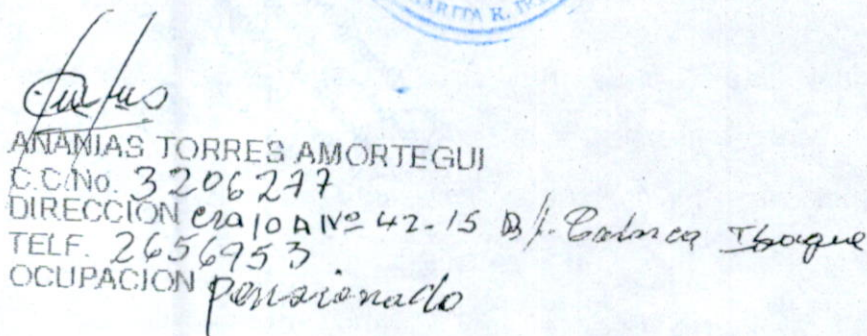 ANANIAS TORRES AMORTEGUI
C.C.No. 3206277
DIRECCION cra 10 A Nº 42-15 B/. Calarca Ibague
TELF. 2656953
OCUPACION pensionado